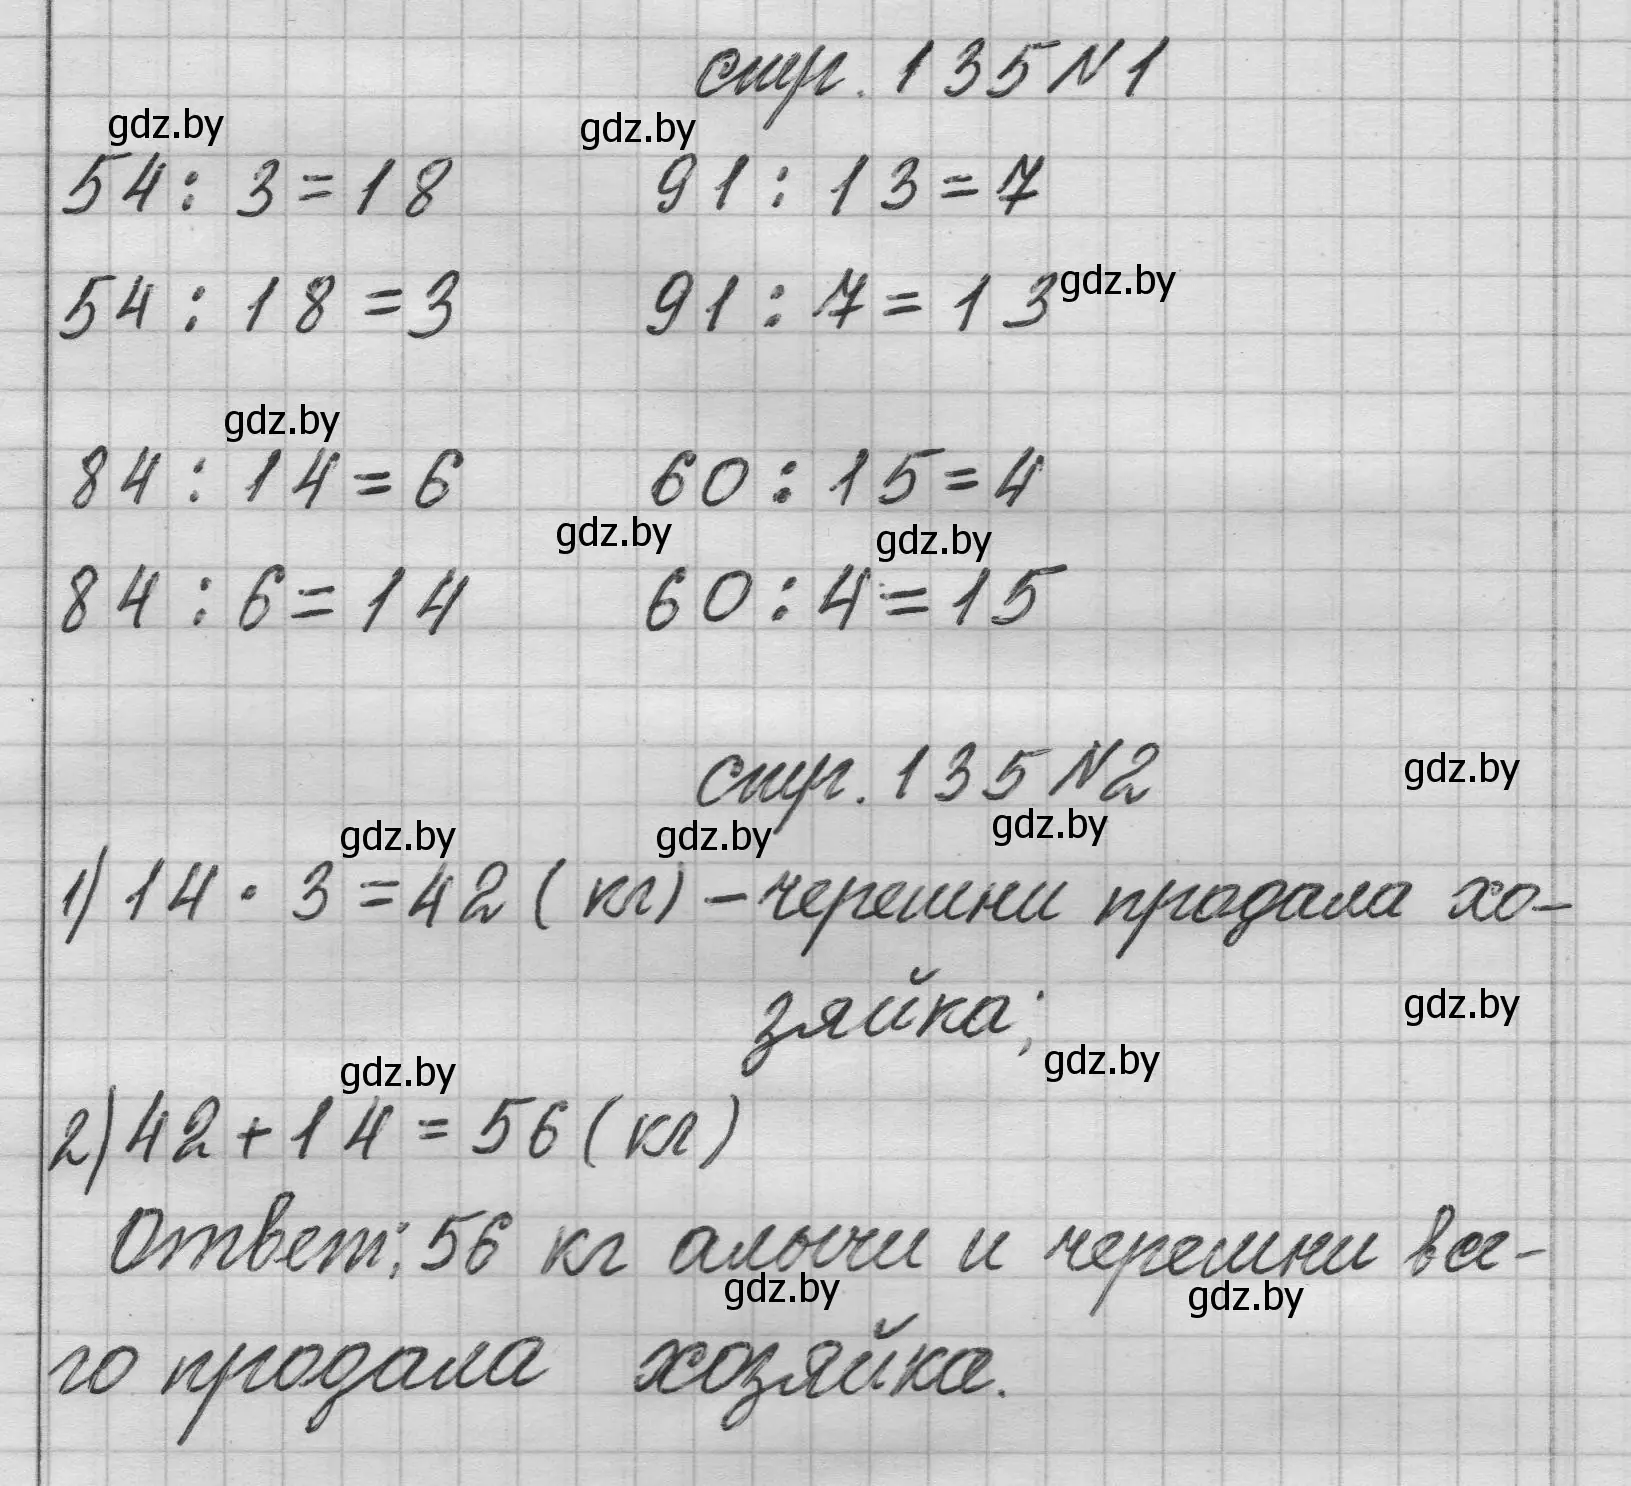 стр. 135 №1
gdz.by gdz.by
54 : 3 = 18 91 : 13 = 7
54 : 18 = 3 91 : 7 = 13 gdz.by
gdz.by
84 : 14 = 6 60 : 15 = 4
gdz.by gdz.by
84 : 6 = 14 60 : 4 = 15
стр. 135 №2 gdz.by
gdz.by gdz.by gdz.by
1) 14 · 3 = 42 (кг) – черешни продала хо-
зяйка; gdz.by
gdz.by gdz.by
2) 42 + 14 = 56 (кг)
Ответ: 56 кг алычи и черешни все-
gdz.by gdz.by
го продала хозяйка.